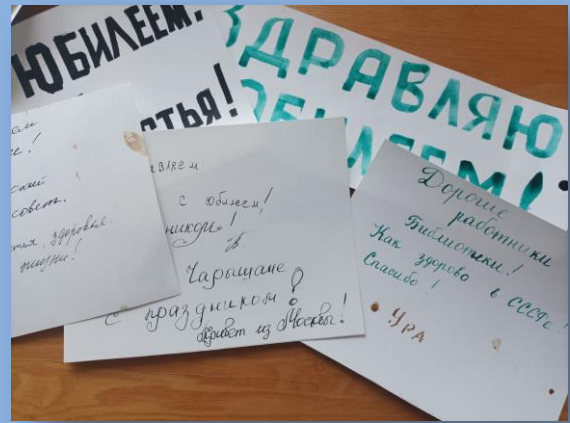 ЮБИЛЕЕМ!
ТЬЯ!
ЗДРАВЛЯЮ
ОБИЛЕЕМ!
е!
советь.
тья, здоровья!
жизни!
вляем
с юбилеем!
ником!
Чарыщане
с праздником!
Привет из Москвы!
Дорогие
работники
Библиотеки!
Как здорово в СССР!
Спасибо!
УРА